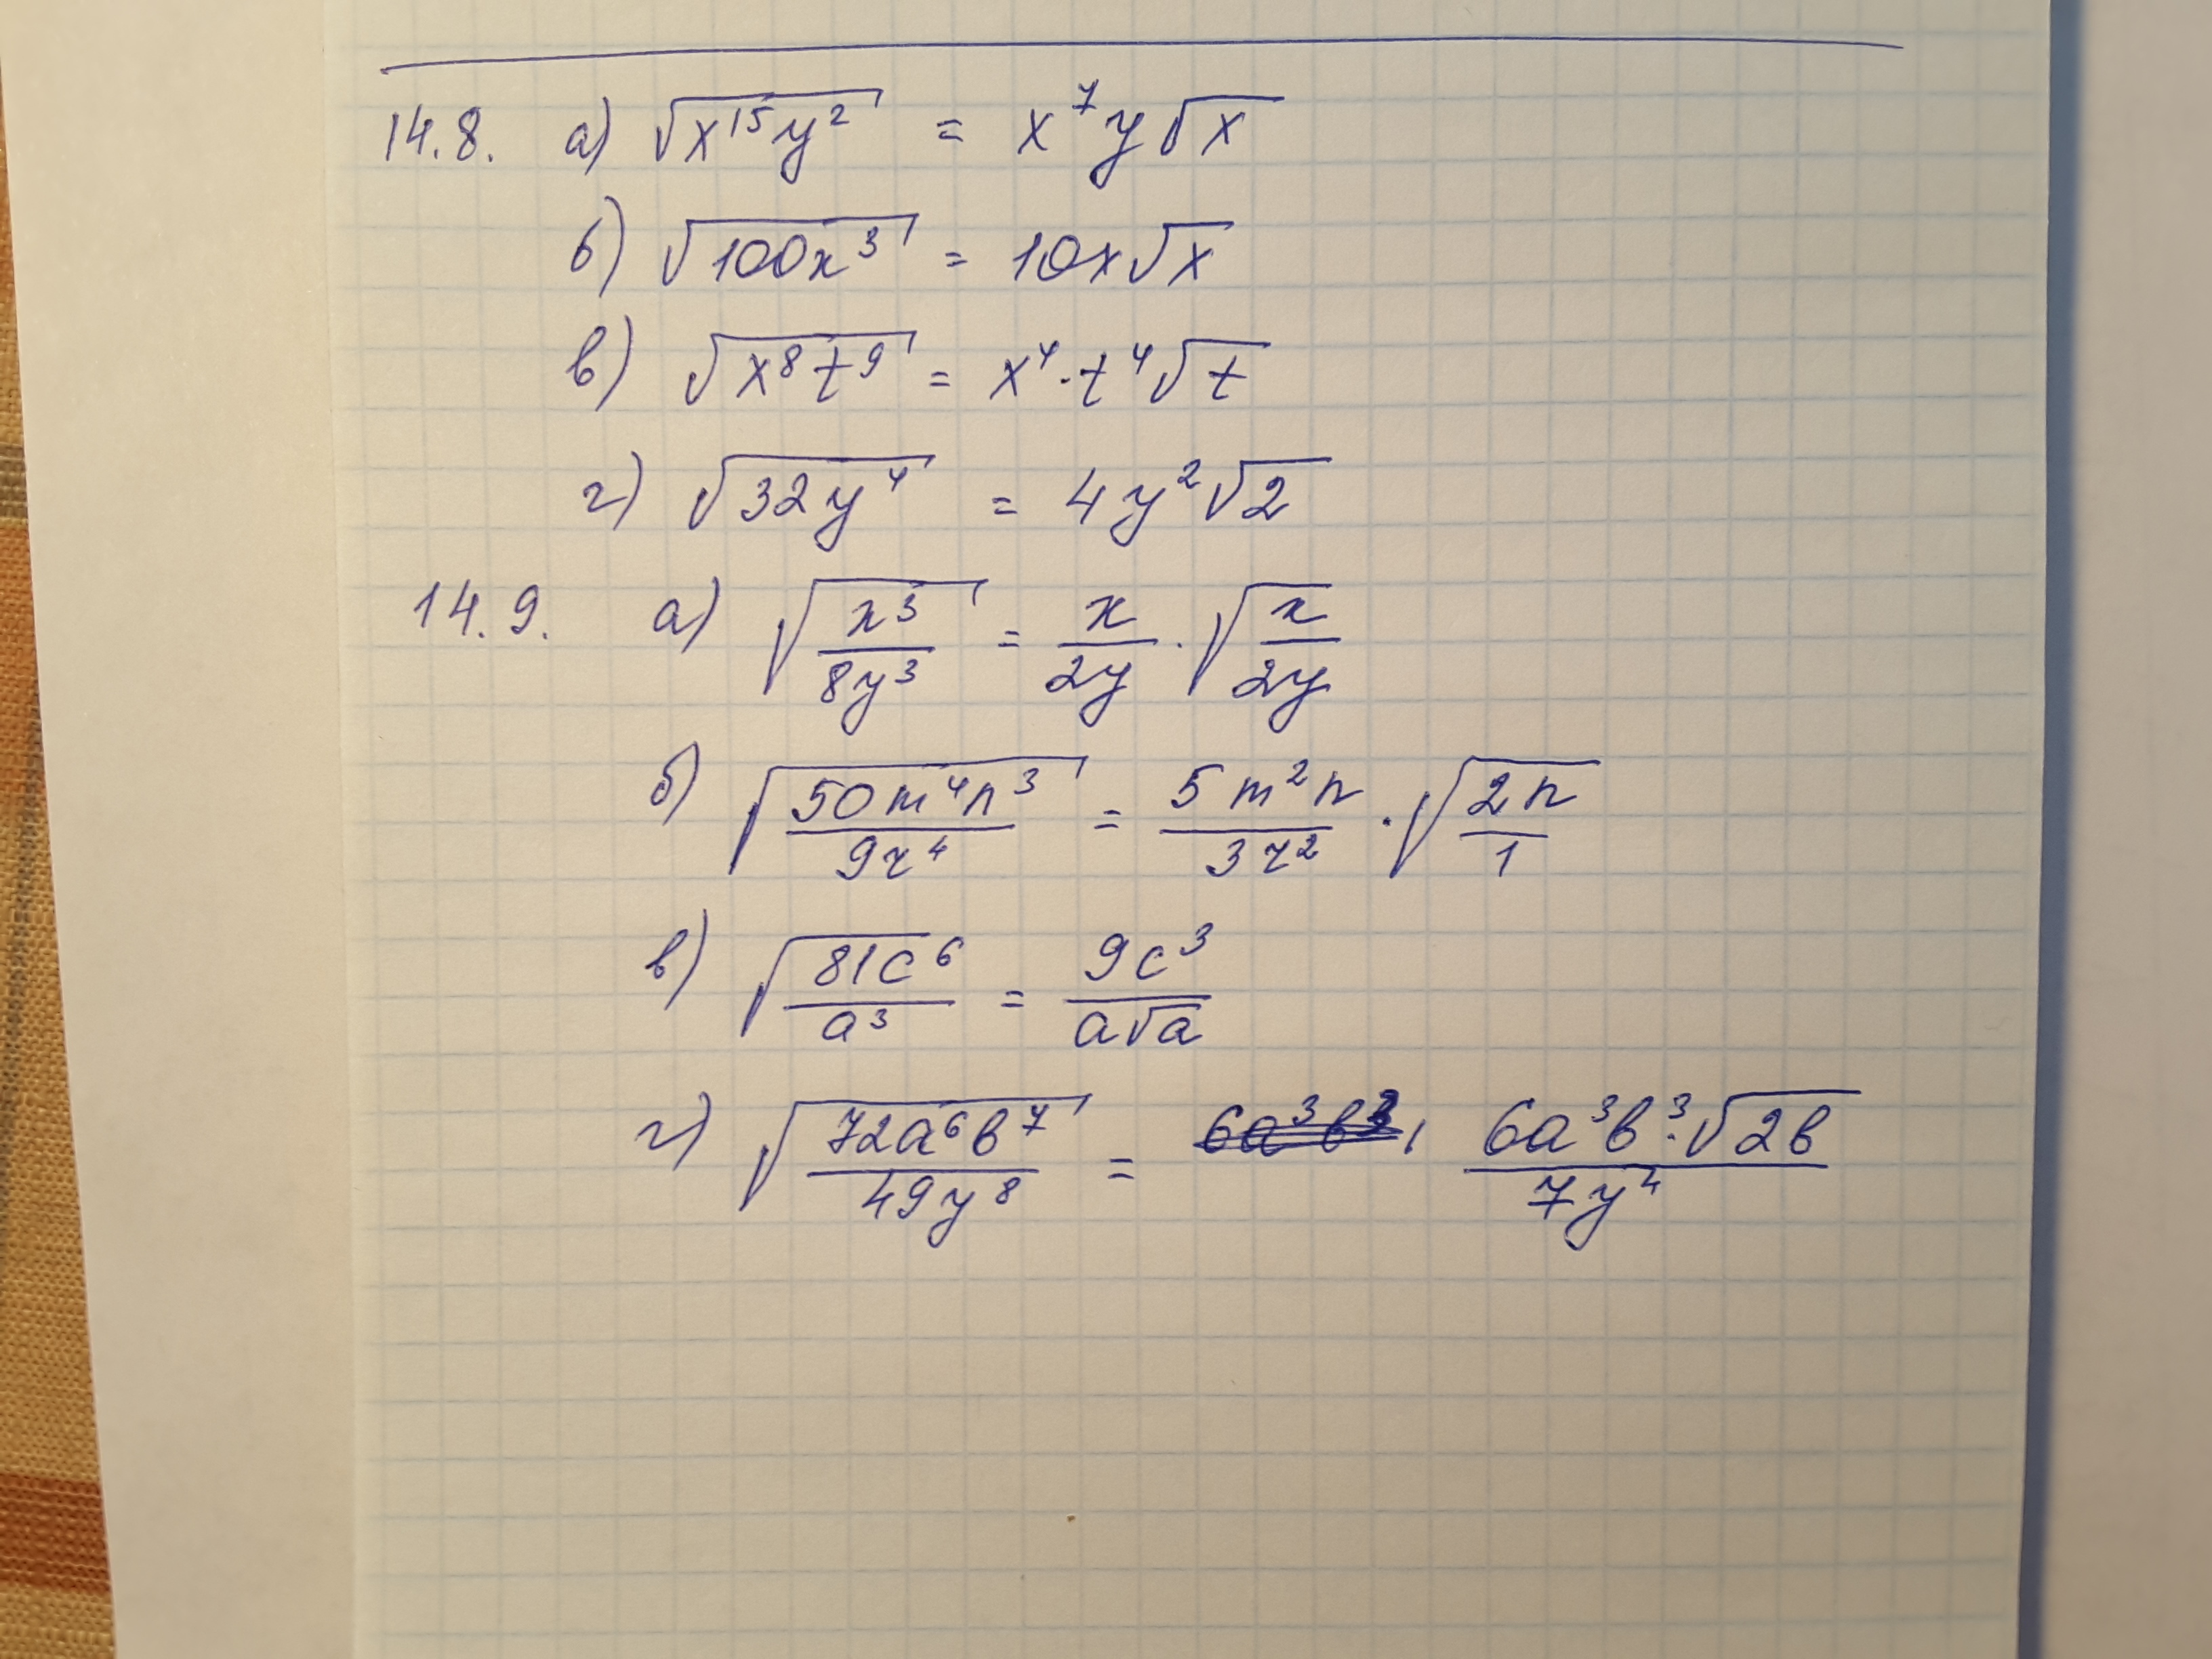 14.8. а) √(x¹⁵y²) = x⁷y√x
б) √(100x³) = 10x√x
в) √(x⁸t⁹) = x⁴·t⁴√t
г) √(32y⁴) = 4y²√2
14.9. а) √(x³/8y³) = x/2y · √(x/2y)
б) √(50m⁴n³/9z⁴) = 5m²n/3z² · √(2n/1)
в) √(81c⁶/a³) = 9c³/a√a
г) √(72a⁶b⁷/49y⁸) = 6a³b³·√(2b)/7y⁴